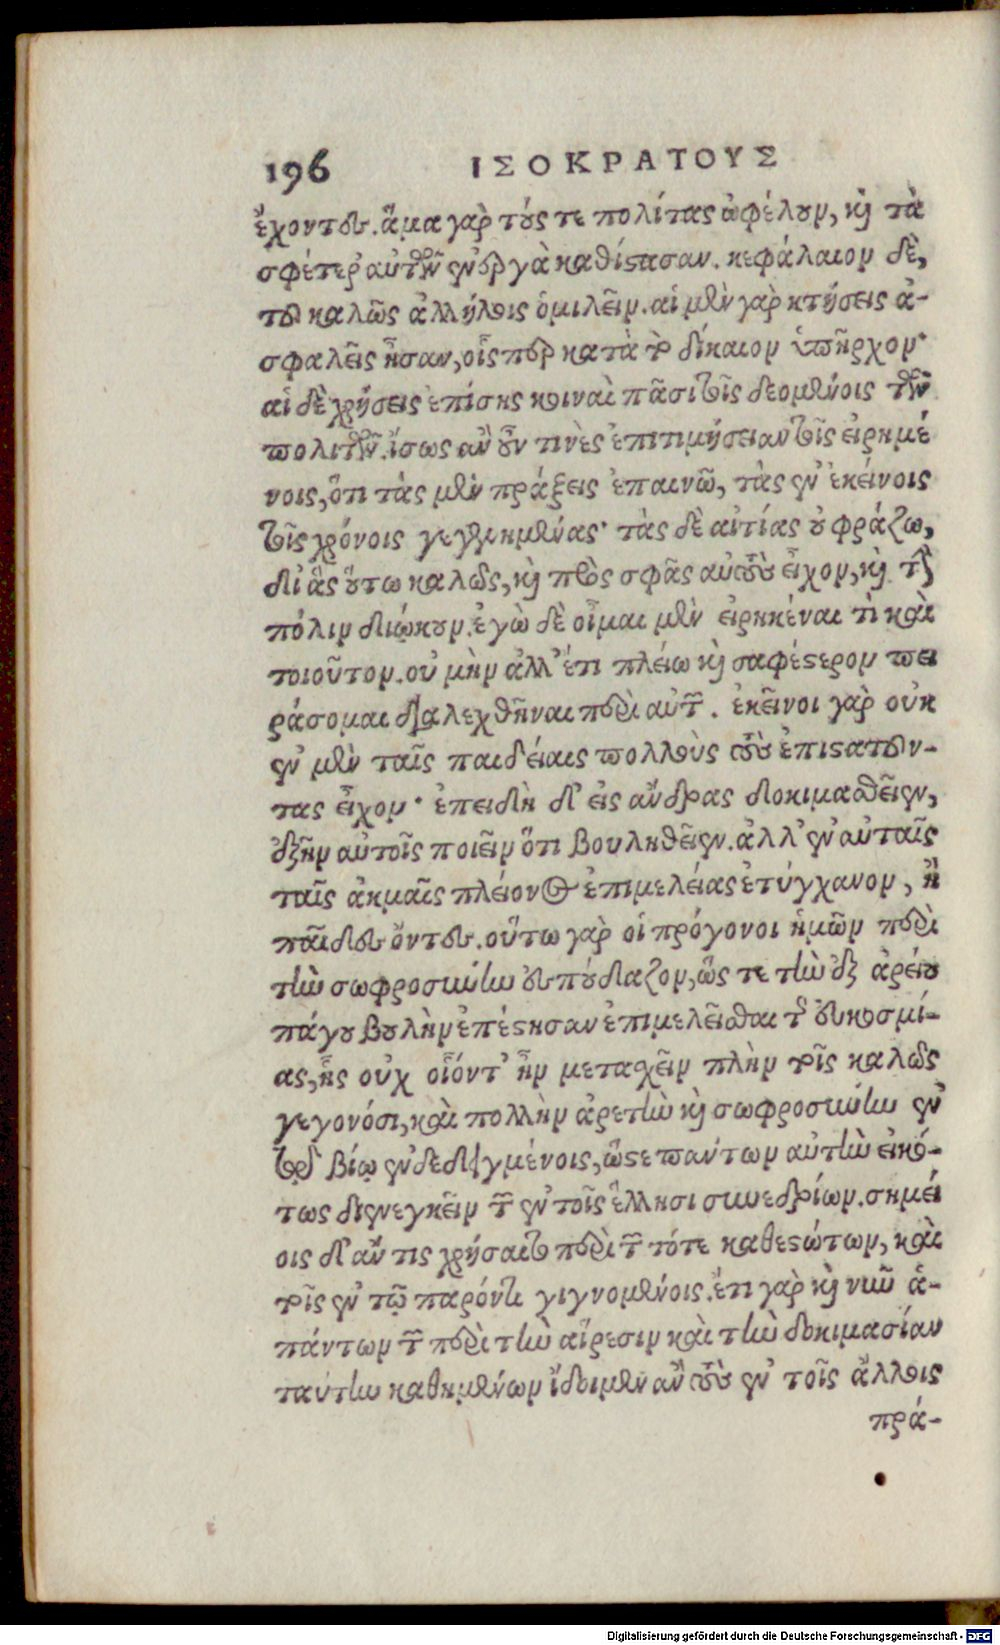 196 ΙΣΟΚΡΑΤΟΥΣ
ἔχοντες. ἅμα γὰρ τούς τε πολίτας ὠφέλουν, καὶ τὰ
σφέτερ᾽ αὐτῶν ἐνεργὰ καθίστασαν. κεφάλαιον δὲ,
τοῦ καλῶς ἀλλήλοις ὁμιλεῖν. αἱ μὲν γὰρ κτήσεις ἀ-
σφαλεῖς ἦσαν, οἷς περ κατὰ τὸ δίκαιον ὑπῆρχον·
αἱ δὲ χρήσεις ἐπίσης κοιναὶ πᾶσι τοῖς δεομένοις τῶν
πολιτῶν. ἴσως ἂν οὖν τινὲς ἐπιτιμήσειαν τοῖς εἰρημέ
νοις, ὅτι τὰς μὲν πράξεις ἐπαινῶ, τὰς ἐν ἐκείνοις
τοῖς χρόνοις γεγενημένας· τὰς δὲ αἰτίας οὐ φράζω,
δι᾽ ἃς οὕτω καλῶς, καὶ πρὸς σφᾶς αὐτοὺς εἶχον, καὶ τὴν
πόλιν διῴκουν. ἐγὼ δὲ οἶμαι μὲν εἰρηκέναι τὶ καὶ
τοιοῦτον. οὐ μὴν ἀλλ᾽ ἔτι πλείω καὶ σαφέστερον πει
ράσομαι διαλεχθῆναι περὶ αὐτῶν. ἐκεῖνοι γὰρ οὐκ
ἐν μὲν ταῖς παιδείαις πολλοὺς τοὺς ἐπιστατοῦν-
τας εἶχον· ἐπειδὴ δ᾽ εἰς ἄνδρας δοκιμασθεῖεν,
ἐξῆν αὐτοῖς ποιεῖν ὅτι βουληθεῖεν. ἀλλ᾽ ἐν αὐταῖς
ταῖς ἀκμαῖς πλείονος ἐπιμελείας ἐτύγχανον, ἢ
παῖδες ὄντες. οὕτω γὰρ οἱ πρόγονοι ἡμῶν περὶ
τὴν σωφροσύνην ἐσπούδαζον, ὥς τε τὴν ἐξ ἀρείου
πάγου βουλὴν ἐπέστησαν ἐπιμελεῖσθαι τῆς εὐκοσμί-
ας, ἧς οὐχ οἷόντ᾽ ἦν μετασχεῖν πλὴν τοῖς καλῶς
γεγονόσι, καὶ πολλὴν ἀρετὴν καὶ σωφροσύνην ἐν
τῷ βίῳ ἐνδεδειγμένοις, ὥστε πάντων αὐτὴν εἰκό-
τως διενεγκεῖν τῶν ἐν τοῖς ἕλλησι συνεδρίων. σημεί
οις δ᾽ ἄν τις χρήσαιτο περὶ τῶν τότε καθεστώτων, καὶ
τοῖς ἐν τῷ παρόντι γιγνομένοις. ἔτι γὰρ καὶ νῦν ἁ-
πάντων τῶν περὶ τὴν αἵρεσιν καὶ τὴν δοκιμασίαν
ταύτην καθημένων ἴδοιμεν ἂν τοὺς ἐν τοῖς ἄλλοις
πρά-
Digitalisierung gefördert durch die Deutsche Forschungsgemeinschaft - DFG